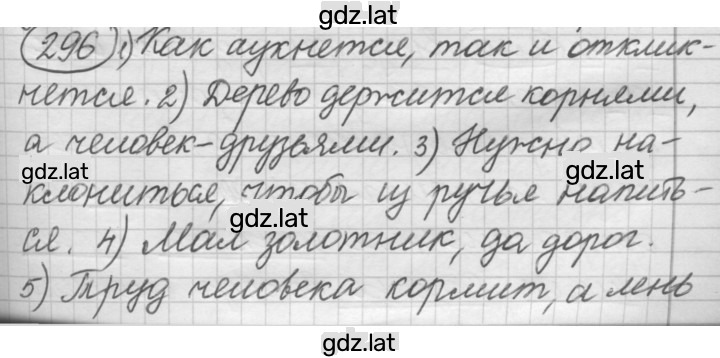 gdz.lat
296 1) Как аукнется, так и отклик-
нется. 2) Дерево держится корнями,
а человек-друзьями. 3) Нужно на-
gdz.lat gdz.lat
клониться, чтобы из ручья напить-
gdz.lat
ся. 4) Мал золотник, да дорог.
5) Труд человека кормит, а лень
gdz.lat